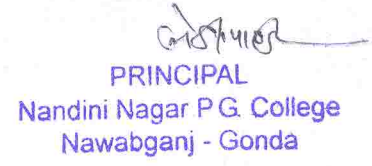 PRINCIPAL
Nandini Nagar P G. College
Nawabganj - Gonda